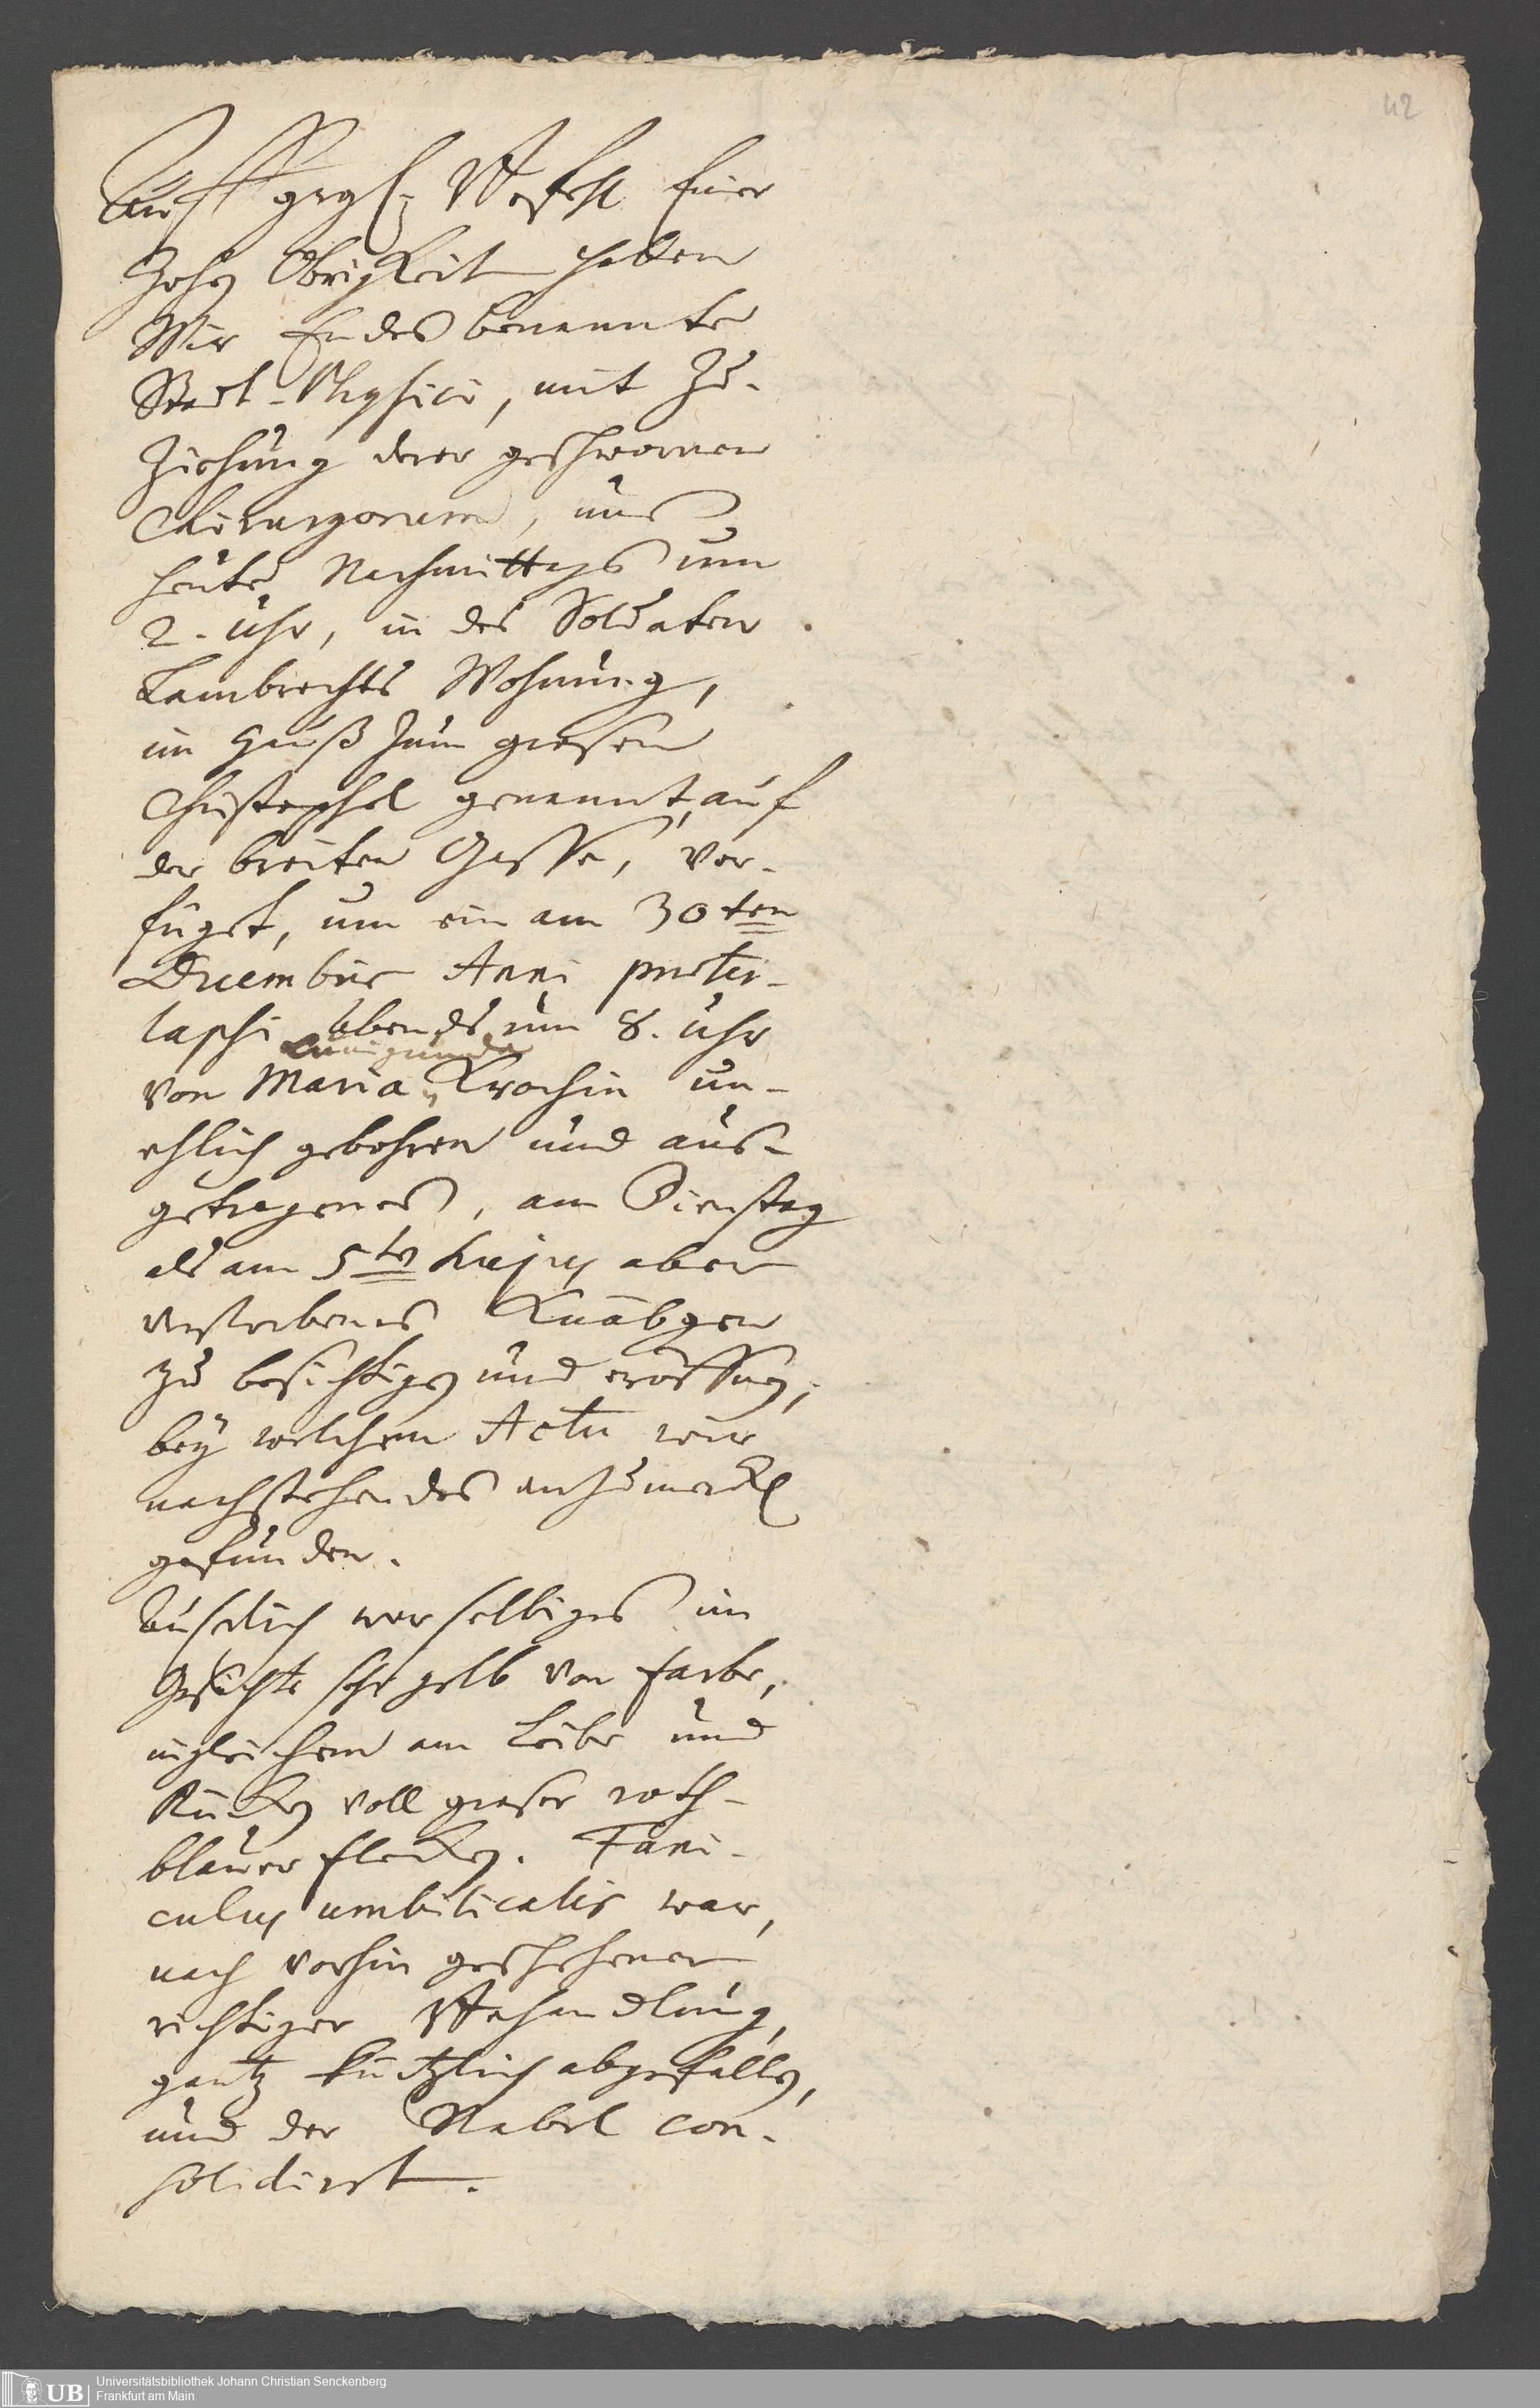 42
Auff gegl. Befehl Einer
Hohen Obrigkeit haben
Wir Endes benannte
Stadt-Physici, mit Zu-
Ziehung derer geschwornen
Chirurgorum, uns
heute Nachmittags um
2. Uhr, in des Soldaten
Lambrechts Wohnung,
im Hauß zum grosen
Christophel genannt, auf
der breiten Gasse, ver-
füget, um ein am 30ten
Decembris Anni præter-
lapsi Abends um 8. Uhr
Cunigunda
von Maria Krochin un-
ehlich gebohren und aus-
getragenes, am Dienstag
als am 5ten hujus aber
verstorbenes Knäbgen
zu besichtigen und eröffnen;
bey welchem Actu wir
nachstehendes anzumerken
gefunden.
Äuserlich war selbiges im
Gesichte sehr gelb von Farbe,
ingleichem am Leibe und
Rücken voll groser roth-
blauer Flecken. Funi-
culus umbilicalis war,
nach vorhin geschehener
richtiger Behandlung,
gantz kürtzlich abgefallen,
und der Nabel con-
solidirt.
UB
Universitätsbibliothek Johann Christian Senckenberg
Frankfurt am Main